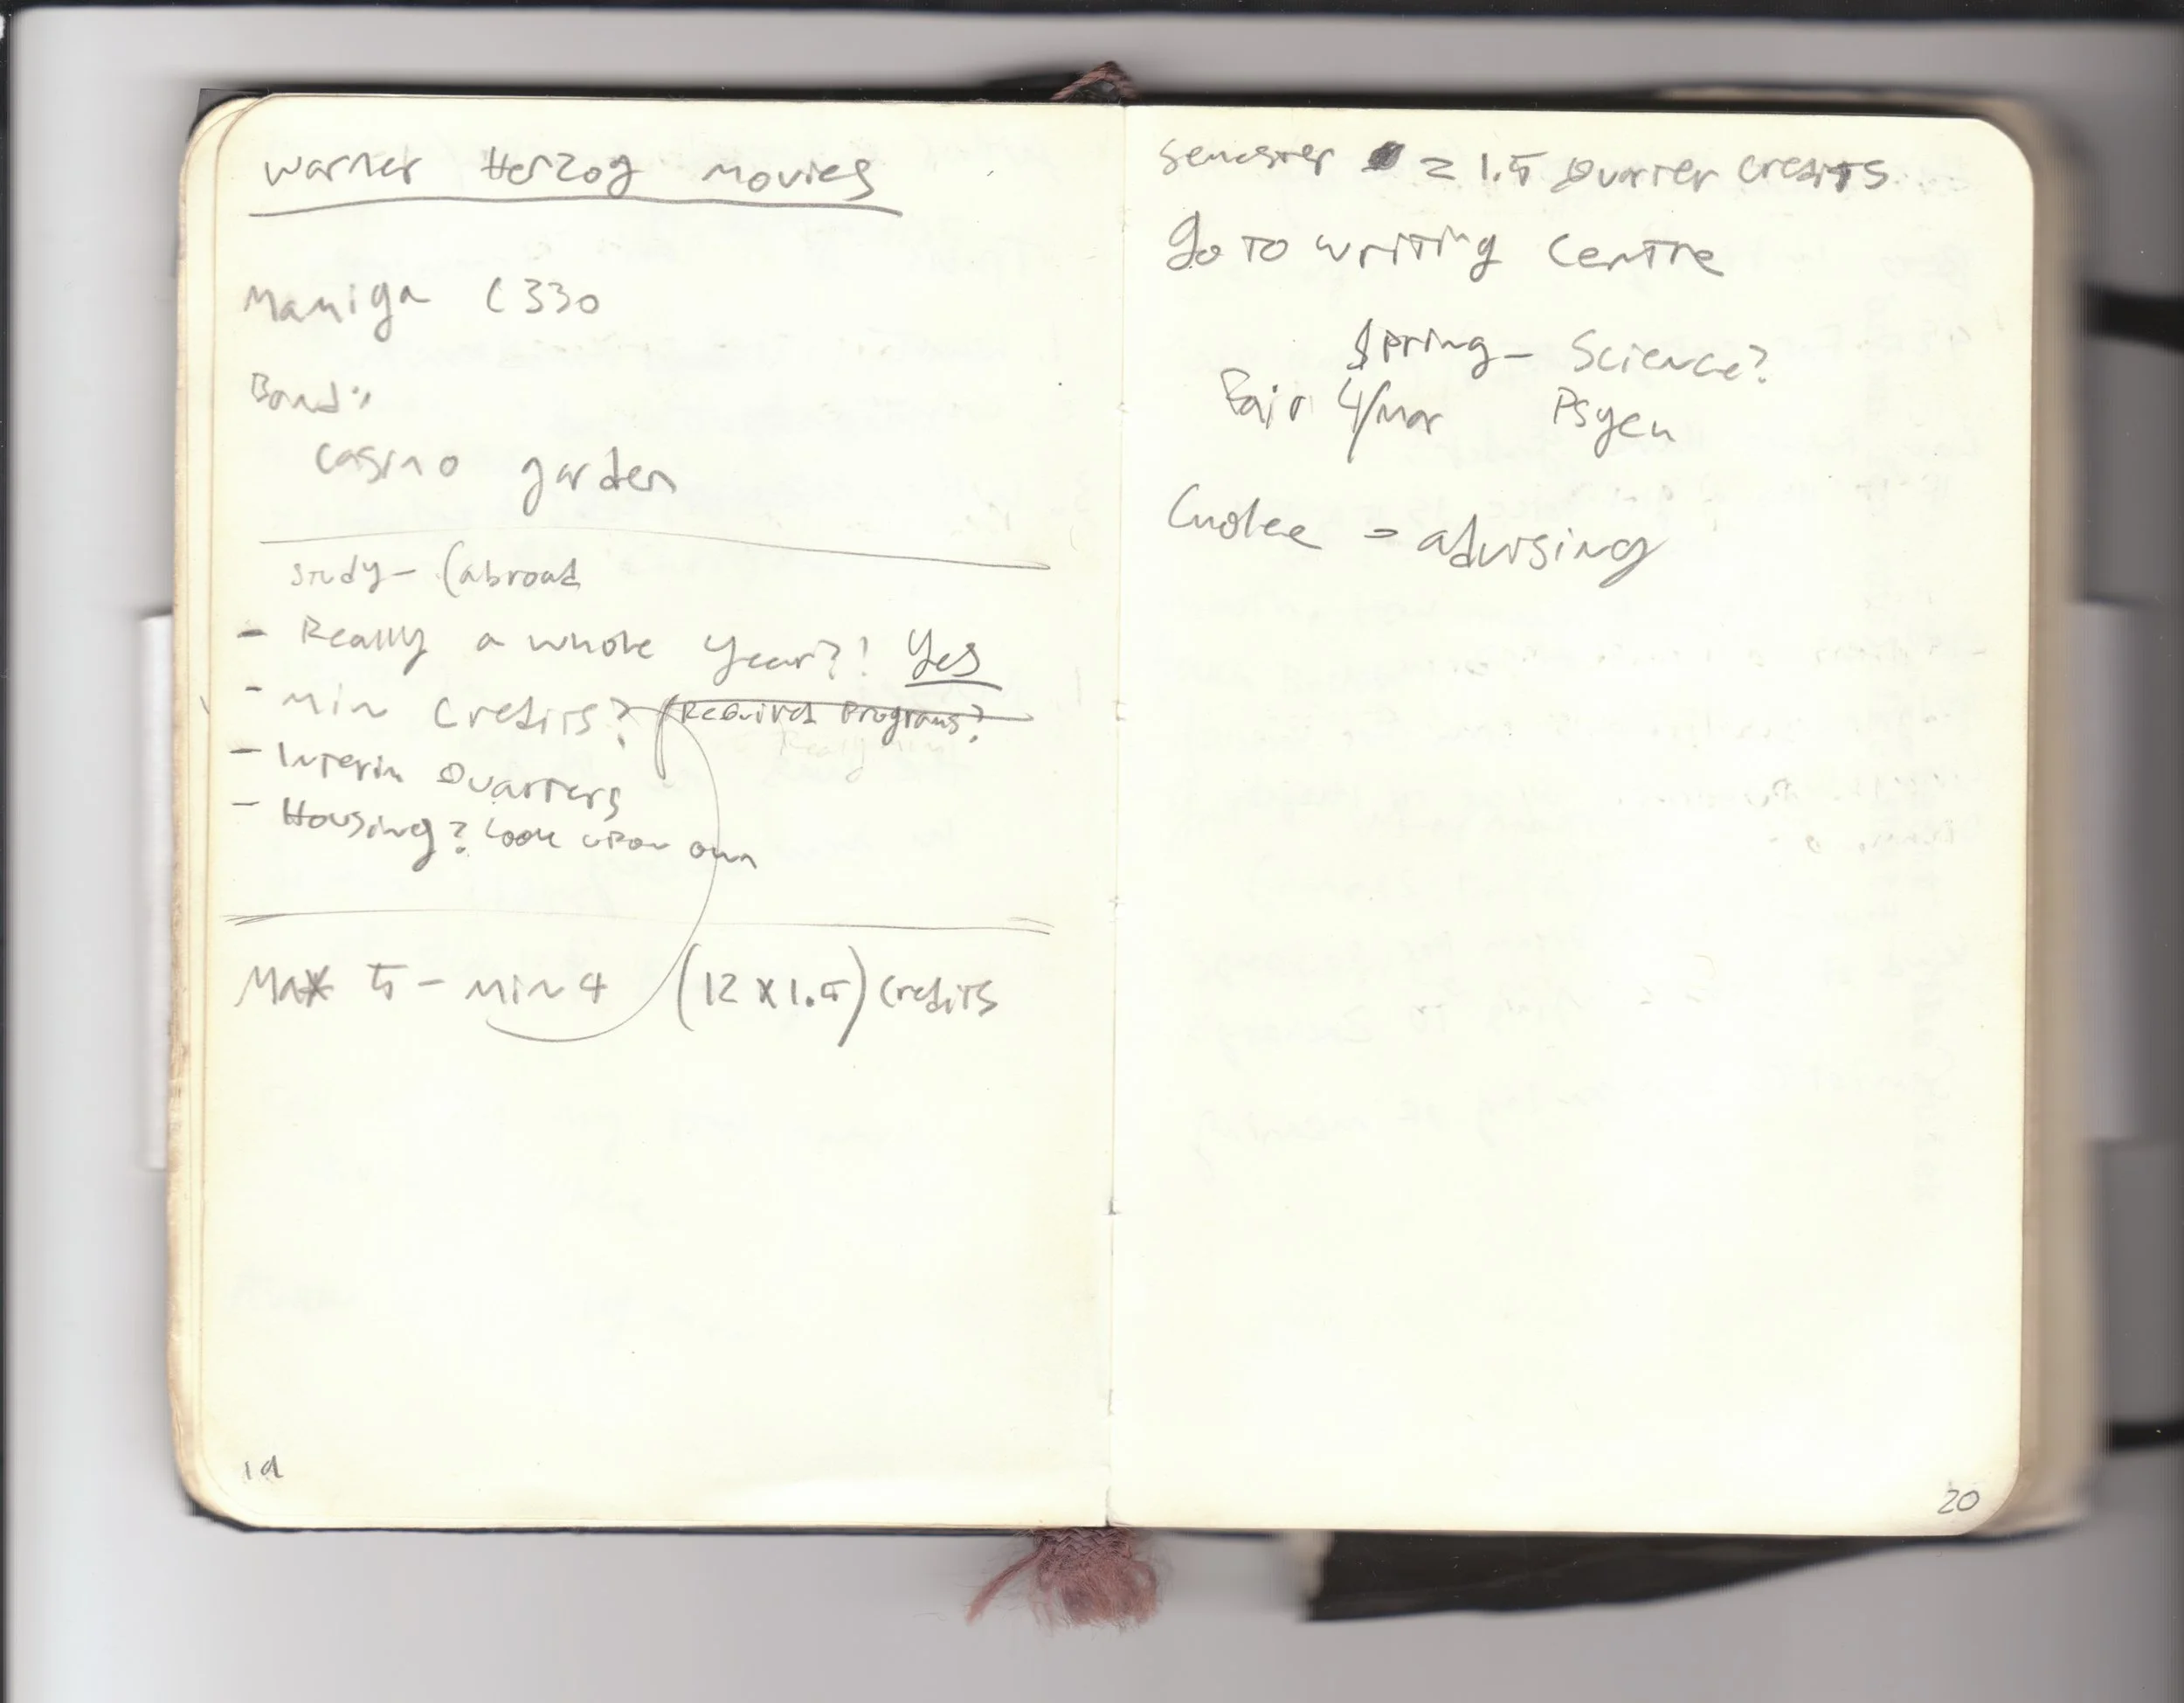 Warner Herzog movies
Mamiya C330
Band:
casino garden
study – (abroad
– Really a whole year?! Yes
– min credits? Required Programs?
– Interim Quarters
– Housing? Look upon own
Max 5 – min 4 (12 x 1.5) credits
19
semester = 1.5 Quarter credits
Go to writing centre
Spring – Science?
Fair 4/mar Psych
= advising
20